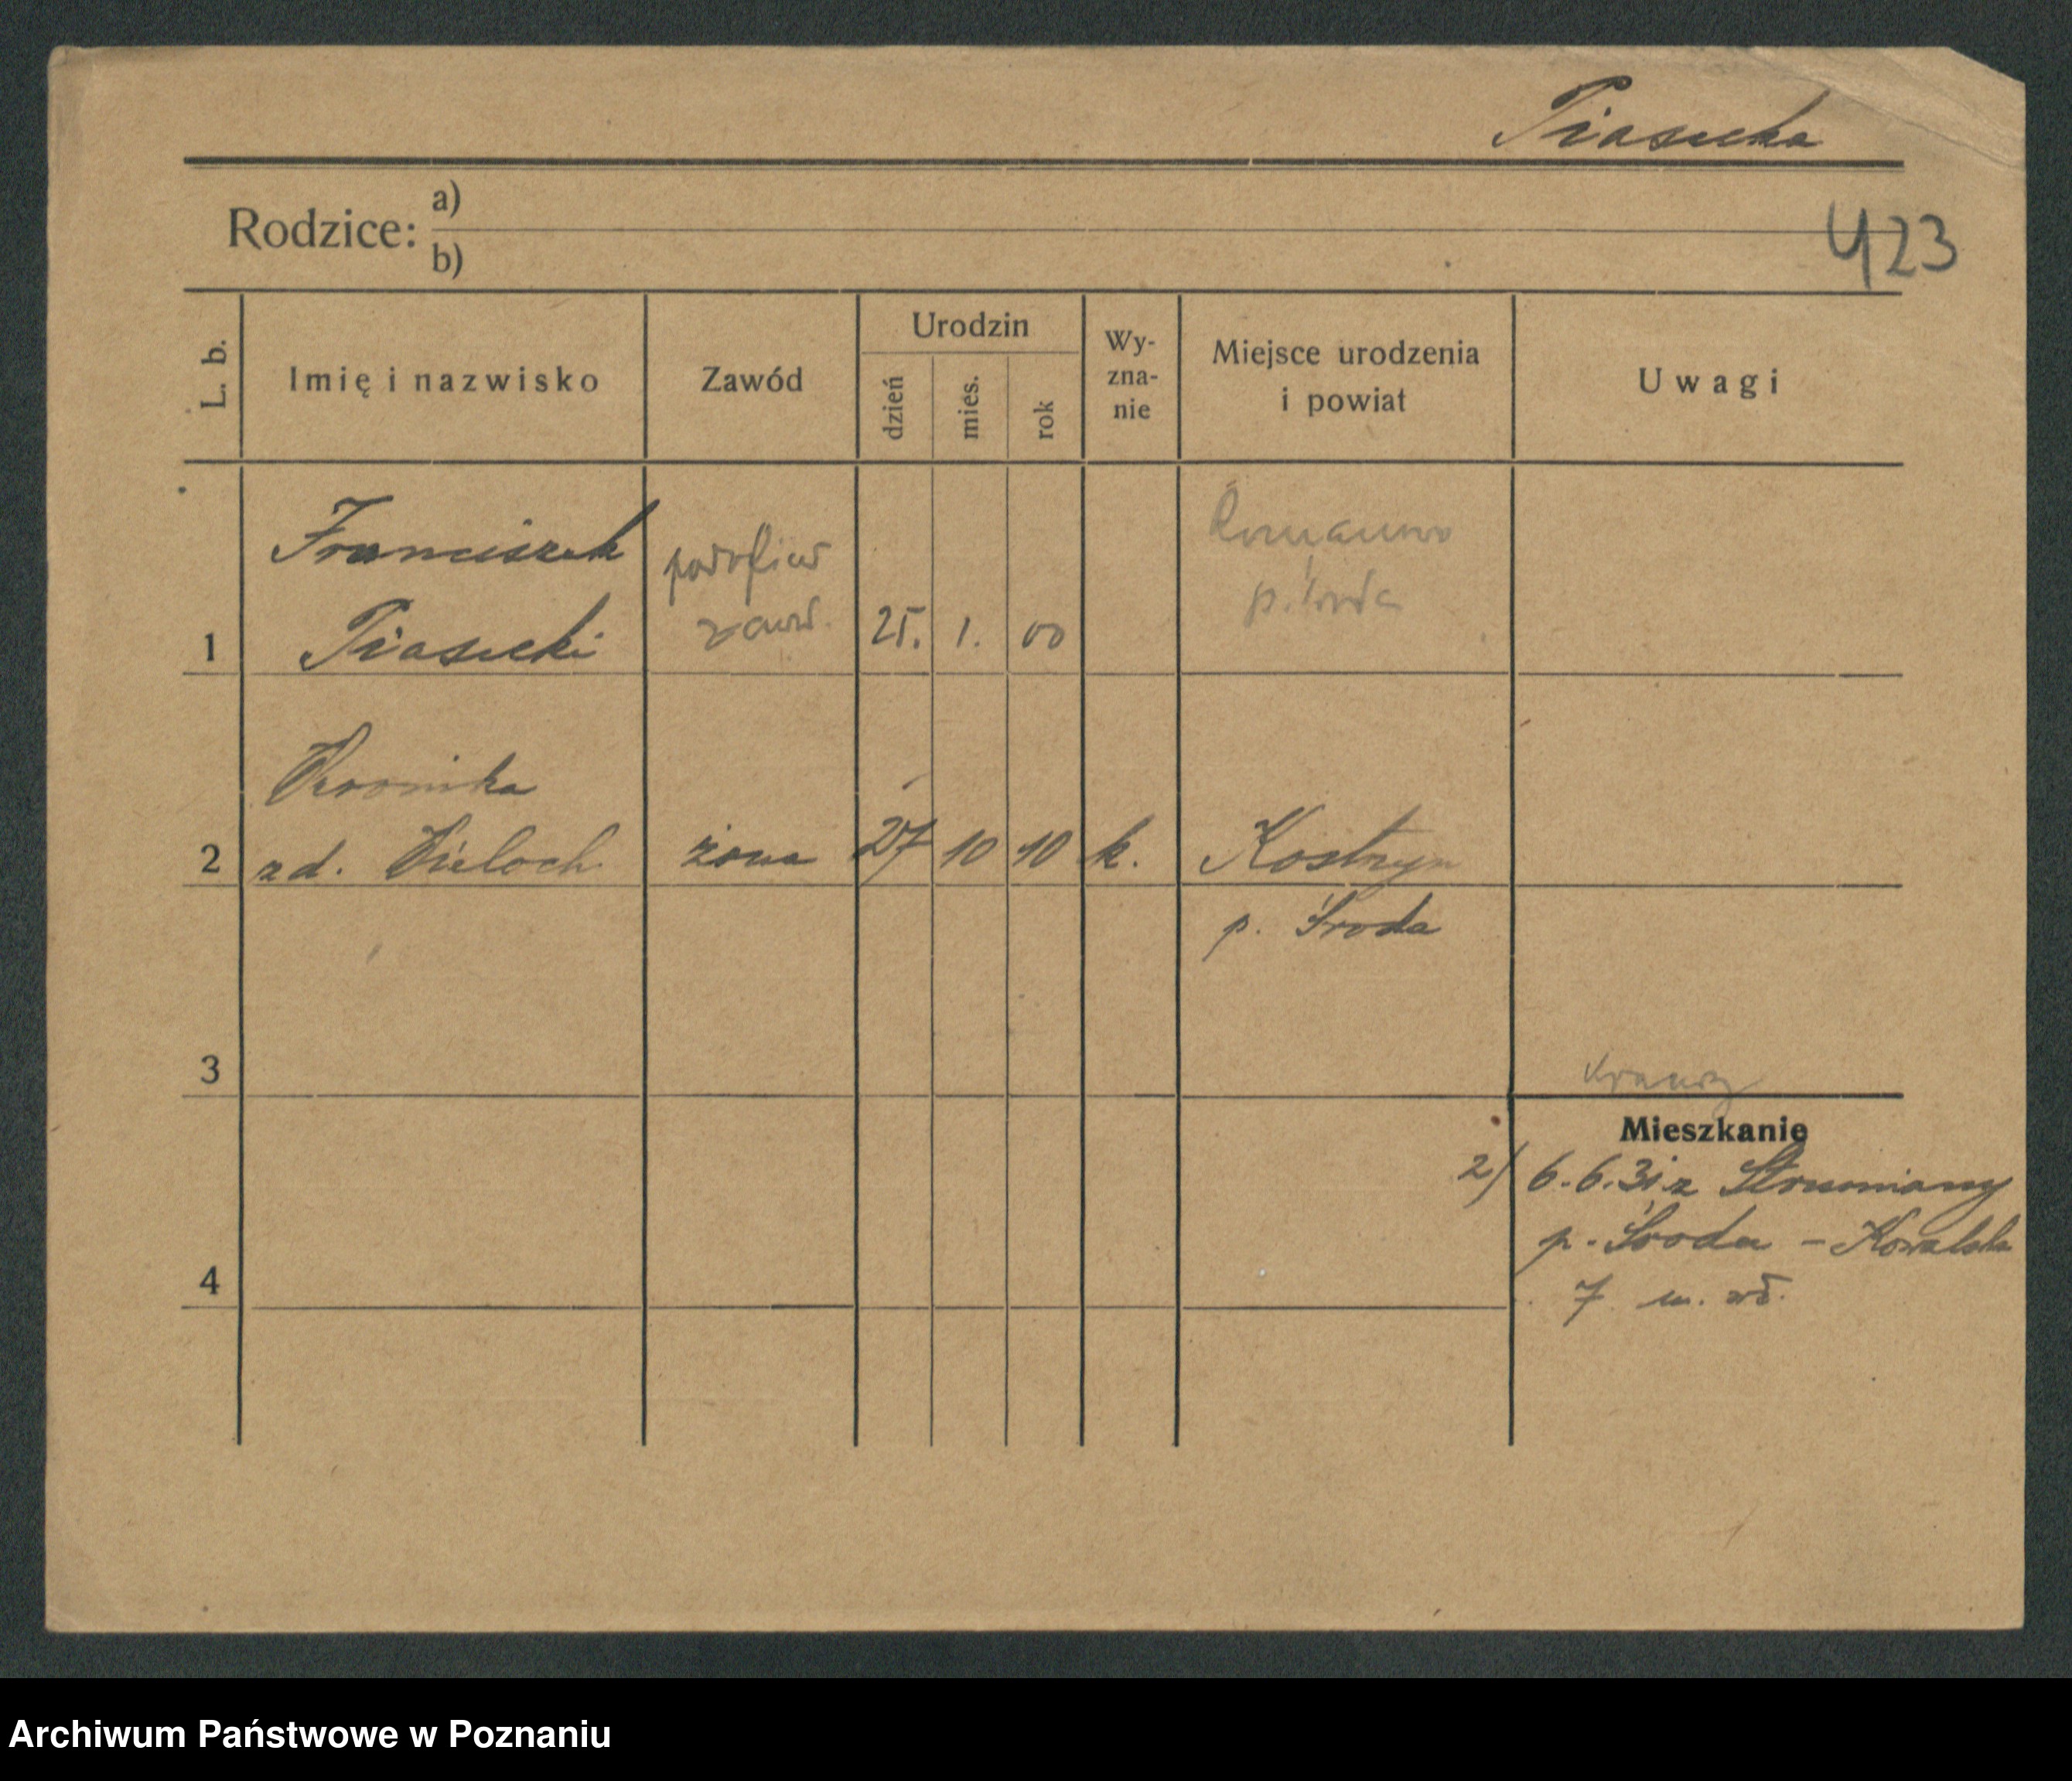 Piasecka
Rodzice: a)
b)
423
L. b.
Imię i nazwisko
Zawód
Urodzin
dzień
mies.
rok
Wy-
zna-
nie
Miejsce urodzenia
i powiat
Uwagi
1
Franciszek
Piasecki
podoficer
zawod.
25. 1. 00
p. Środa
2
Weronika
zd. Wieloch
żona
27 10 10 k.
Kostrzyn
p. Środa
3
4
Mieszkanie
2) 6.6.31 z Strumiany
p. Środa - Kowalska
7 m. wł.
Archiwum Państwowe w Poznaniu